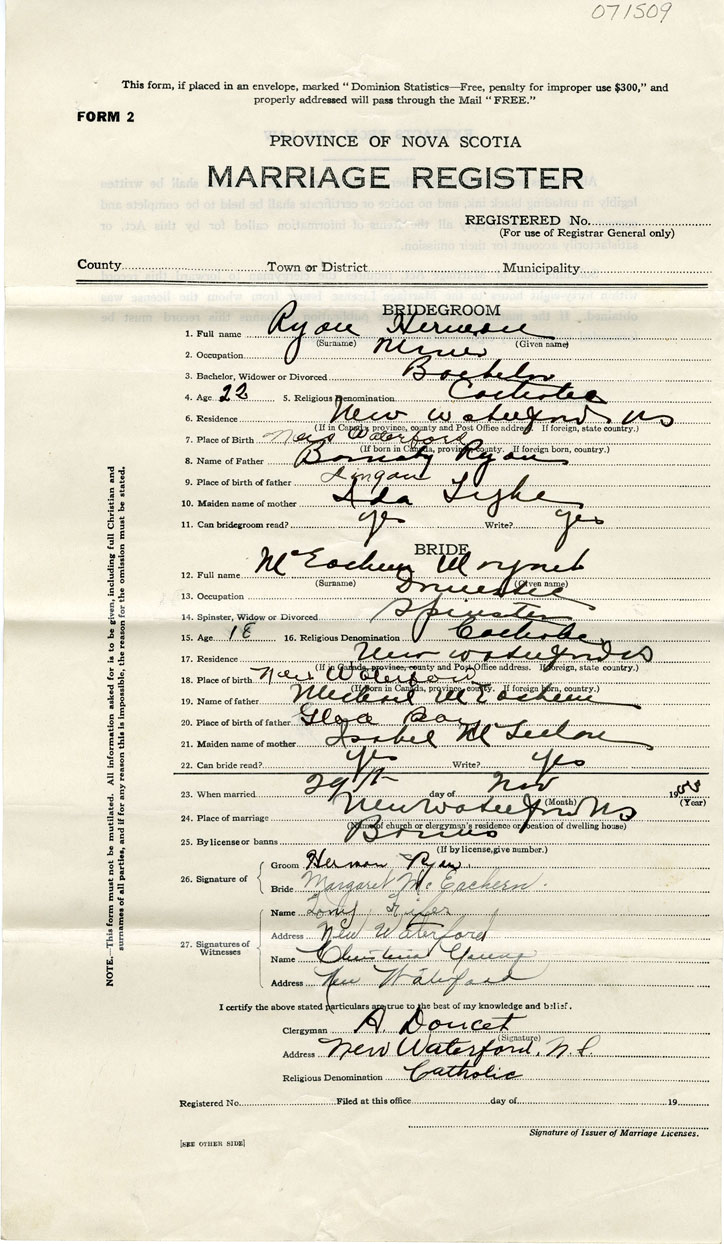 071509
This form, if placed in an envelope, marked "Dominion Statistics—Free, penalty for improper use $300," and
properly addressed will pass through the Mail "FREE."
FORM 2
PROVINCE OF NOVA SCOTIA
MARRIAGE REGISTER
REGISTERED No.
(For use of Registrar General only)
County Town or District Municipality
BRIDEGROOM
1. Full name Ryan Herman
(Surname) (Given name)
2. Occupation Miner
3. Bachelor, Widower or Divorced Bachelor
4. Age 22 5. Religious Denomination Catholic
6. Residence New Waterford NS
(If in Canada, province, county and Post Office address. If foreign, state country.)
7. Place of Birth New Waterford
(If born in Canada, province, county. If foreign born, country.)
8. Name of Father Barnaby Ryan
9. Place of birth of father Lingan
10. Maiden name of mother Ada Tighe
11. Can bridegroom read? yes Write? yes
BRIDE
12. Full name McEachern Margaret
(Surname) (Given name)
13. Occupation Domestic
14. Spinster, Widow or Divorced Spinster
15. Age 18 16. Religious Denomination Catholic
17. Residence New Waterford NS
(If in Canada, province, county and Post Office address. If foreign, state country.)
18. Place of birth New Waterford
(If born in Canada, province, county. If foreign born, country.)
19. Name of father Michael McEachern
20. Place of birth of father Glace Bay
21. Maiden name of mother Isabel
22. Can bride read? yes Write? yes
23. When married 29th day of Nov 1953
(Month) (Year)
24. Place of marriage New Waterford NS
(Name of church or clergyman's residence or location of dwelling house)
25. By license or banns Banns
(If by license, give number.)
26. Signature of Groom Herman Ryan
Bride Margaret McEachern.
27. Signatures of Witnesses Name Tony
Address New Waterford
Name Christina Young
Address New Waterford
I certify the above stated particulars are true to the best of my knowledge and belief.
Clergyman A. Doucet
(Signature)
Address New Waterford, N.S.
Religious Denomination Catholic
Registered No. Filed at this office day of 19
Signature of Issuer of Marriage Licenses.
[SEE OTHER SIDE]
NOTE.—This form must not be mutilated. All information asked for is to be given, including full Christian and
surnames of all parties, and if for any reason this is impossible, the reason for the omission must be stated.